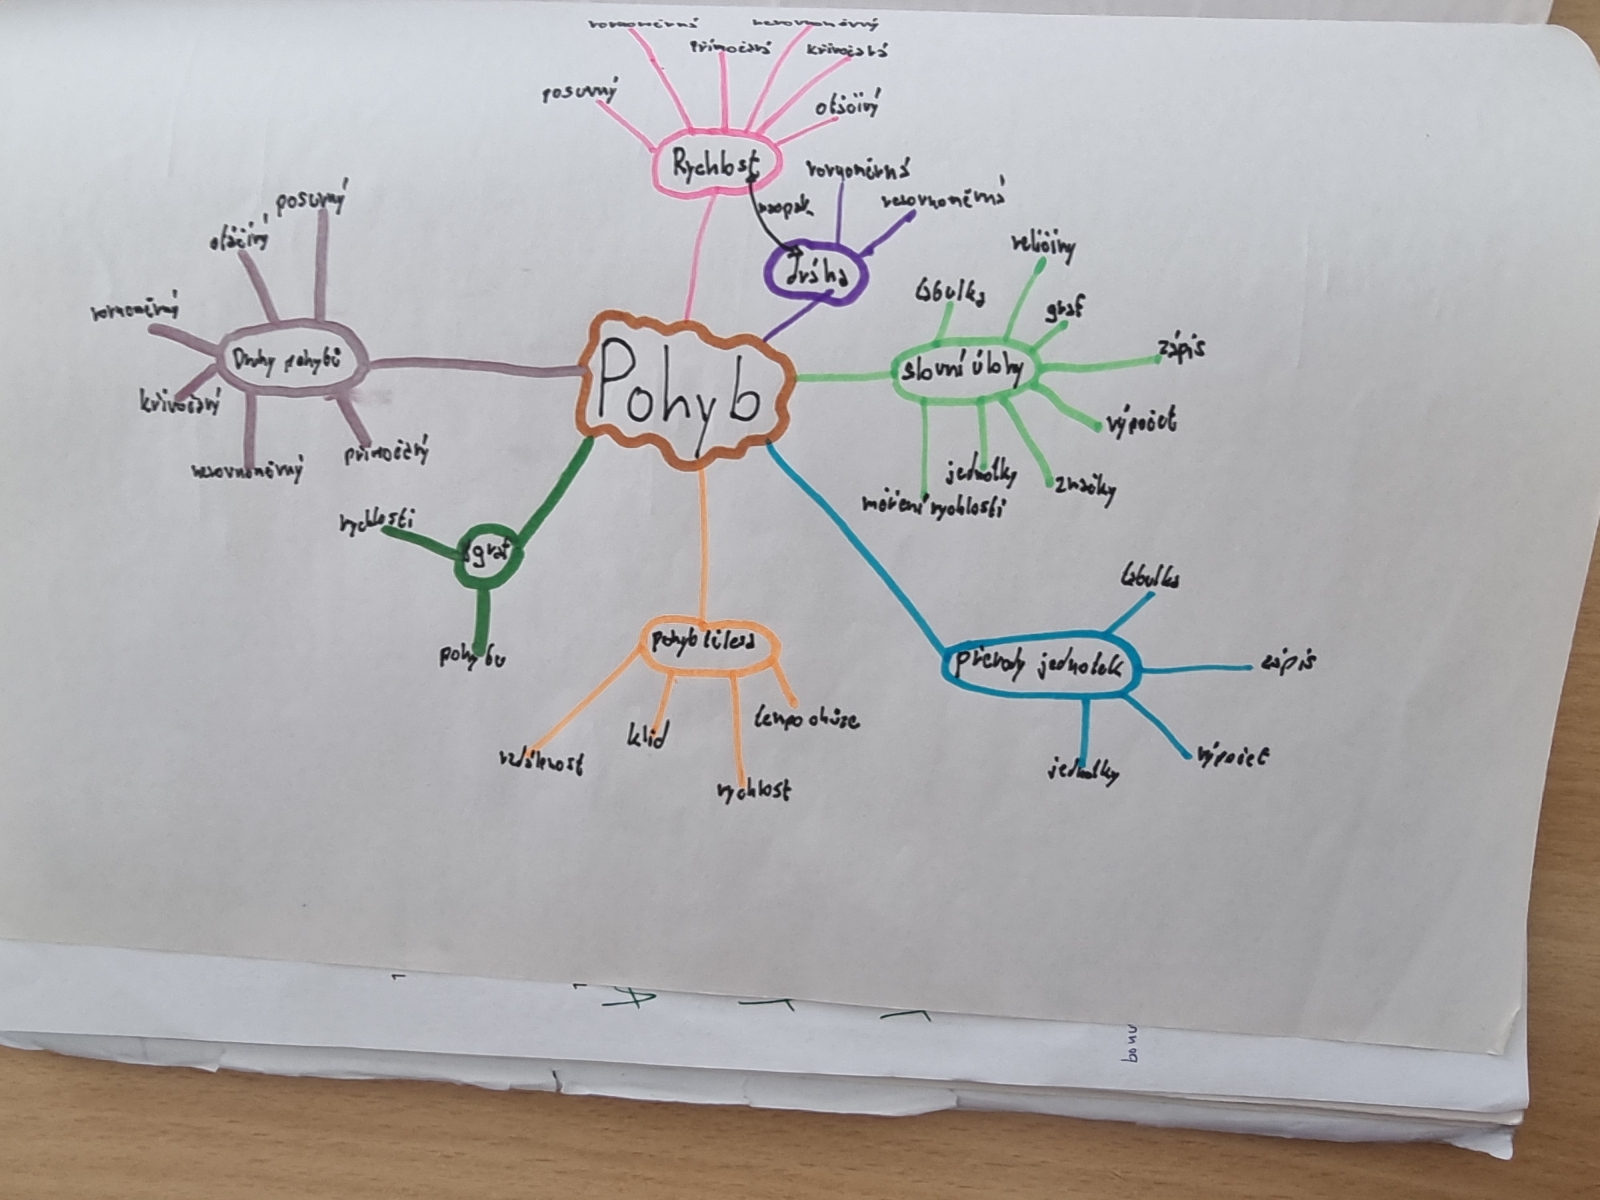 rovnoměrná
nerovnoměrný
přímočará
křivočará
posuvný
otáčivý
Rychlost
naopak
rovnoměrná
nerovnoměrná
dráha
posuvný
otáčivý
rovnoměrný
Druhy pohybů
křivočarý
nerovnoměrný
přímočarý
Pohyb
veličiny
tabulka
graf
zápis
slovní úlohy
výpočet
jednotky
značky
měření rychlosti
rychlosti
graf
pohybu
pohyb tělesa
vzdálenost
klid
rychlost
tabulka
převody jednotek
zápis
jednotky
výpočet